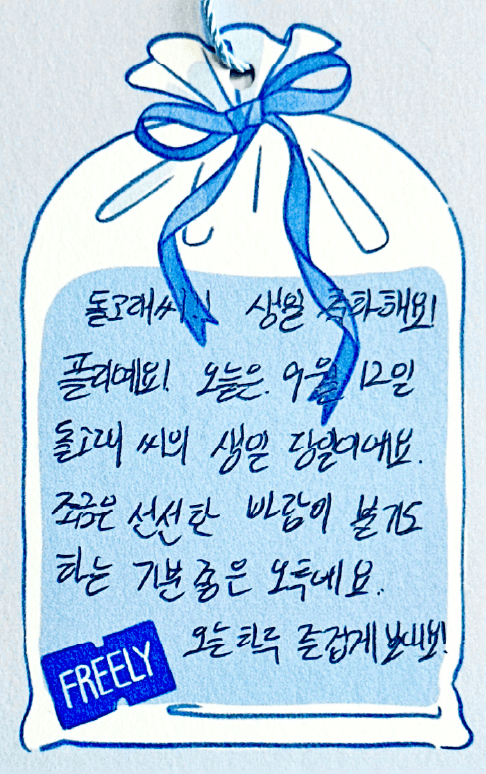 돌고래씨..! 생일 축하해요!
플리예요! 오늘은 9월 12일
돌고래 씨의 생일 당일이에요.
조금은 선선한 바람이 불기도
하는 기분 좋은 오후네요.
오늘 하루 즐겁게 보내요!
FREELY